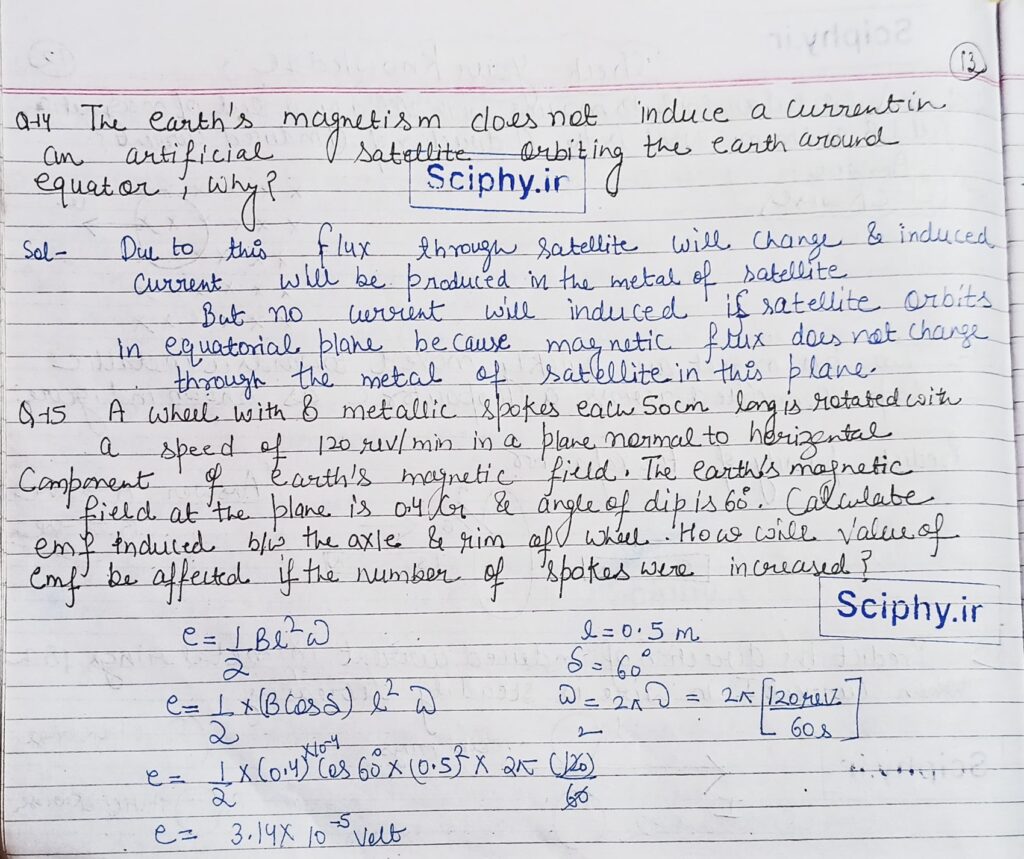 13
Q-14 The earth's magnetism does not induce a current in
an artificial satellite orbiting the earth around
equator, why?
Sciphy.ir
Sol- Due to this flux through satellite will change & induced
current will be produced in the metal of satellite
But no current will induced if satellite orbits
in equatorial plane because magnetic flux does not change
through the metal of satellite in this plane.
Q-15 A wheel with 8 metallic spokes each 50cm long is rotated with
a speed of 120 rev/min in a plane normal to horizental
Component of earth's magnetic field. The earth's magnetic
field at the plane is 0.4 Gr & angle of dip is 60°. Calculate
emf induced b/w the axle & rim of wheel. How will value of
emf be affected if the number of spokes were increased?
Sciphy.ir
e = 1/2 Bl²ω l = 0.5 m
δ = 60°
e = 1/2 x (B Cosδ) l² ω ω = 2πν = 2π [120 rev/60s]
e = 1/2 x (0.4) x10⁻⁴ Cos 60° x (0.5)² x 2π (120)/60
e = 3.14 x 10⁻⁵ Volt